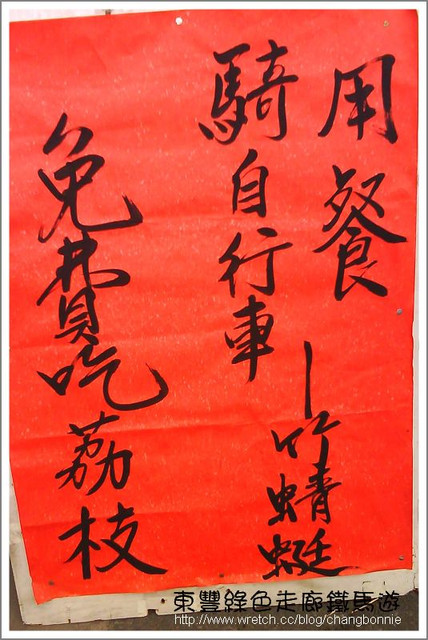 用餐
騎自行車
—竹蜻蜓
免費吃荔枝
東豐綠色走廊鐵馬遊
http://www.wretch.cc/blog/changbonnie